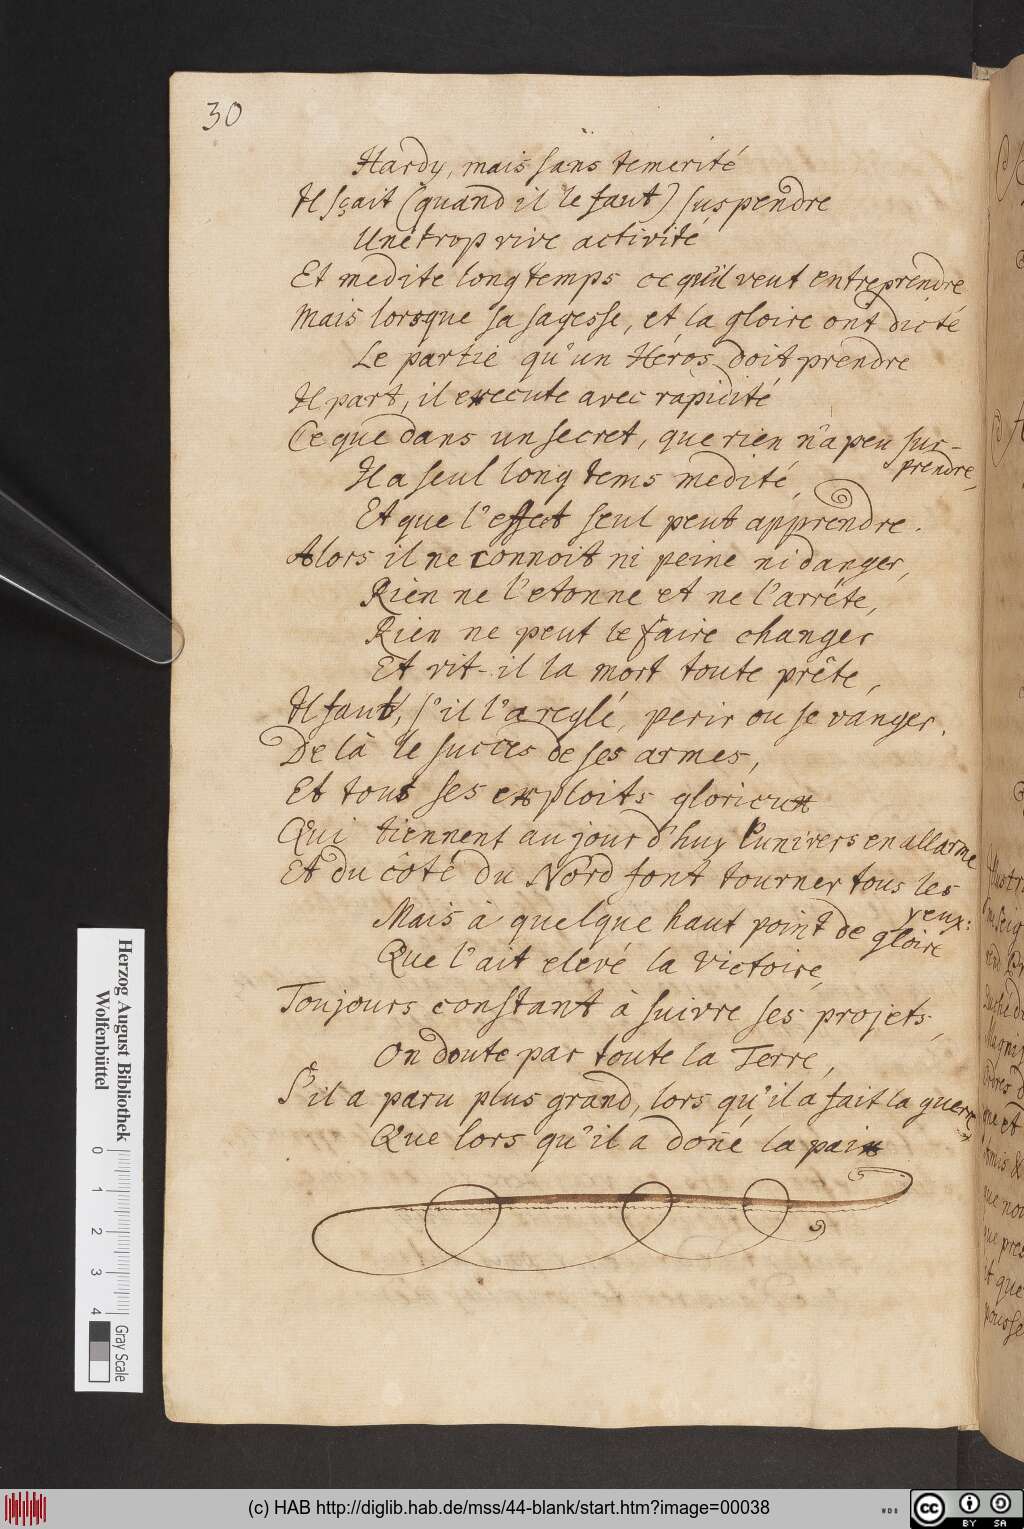 30
Hardy, mais sans temerité
Il sçait (quand il le faut) suspendre
Une trop vive activité,
Et medite long temps ce qu'il veut entreprendre,
Mais lorsque sa sagesse, et la gloire ont dicté
Le partie qu'un Héros doit prendre
Il part, il execute avec rapidité
Ce que dans un secret, que rien n'a peu sur-
prendre,
Il a seul long tems medité,
Et que l'effect seul peut apprendre.
Alors il ne connoit ni peine ni danger,
Rien ne l'etonne et ne l'arréte,
Rien ne peut le faire changer
Et vit-il la mort toute prête,
Il faut, s'il l'a reglé, perir ou se vanger.
De là le succes de ses armes,
Et tous ses exploits glorieux
Qui tiennent aujourd'huy l'univers en allarme
Et du côté du Nord font tourner tous les
yeux:
Mais à quelque haut point de gloire
Que l'ait elevé la victoire,
Toujours constant à suivre ses projets,
On doute par toute la Terre,
S'il a paru plus grand, lors qu'il a fait la guerre
Que lors qu'il a doñé la paix
Herzog August Bibliothek
Wolfenbüttel
0 1 2 3 4
Gray Scale
(c) HAB http://diglib.hab.de/mss/44-blank/start.htm?image=00038
WDB
cc BY SA